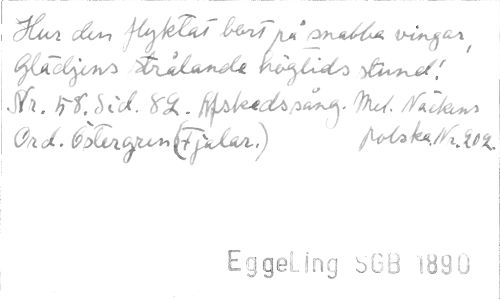 Hur den flyktat bort på snabba vingar,
Glädjens strålande högtids stund!
Nr. 58. Sid. 82. Afskedssång. Mel. Näckens
Ord. Östergren (Fjalar.) polska. Nr. 202.
EggeLing SGB 1890